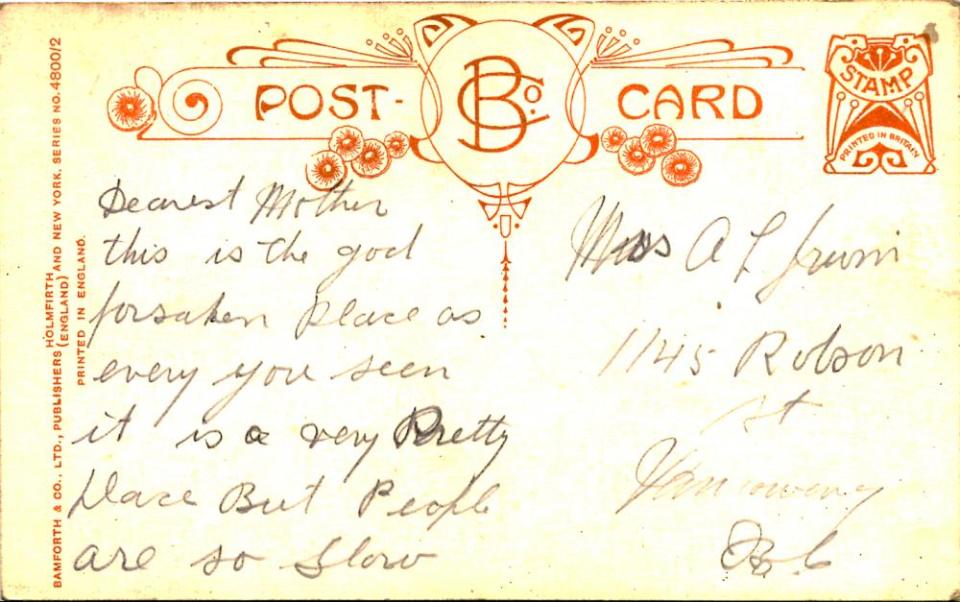 POST-
B Co.
CARD
STAMP
PRINTED IN BRITAIN
BAMFORTH & CO., LTD., PUBLISHERS HOLMFIRTH (ENGLAND) AND NEW YORK. SERIES NO. 4800/2
PRINTED IN ENGLAND.
Dearest Mother
this is the god
forsaken place as
every you seen
it is a very Pretty
place But People
are so slow
A L Irwin
1145 Robson
st
Vancouver
B.C